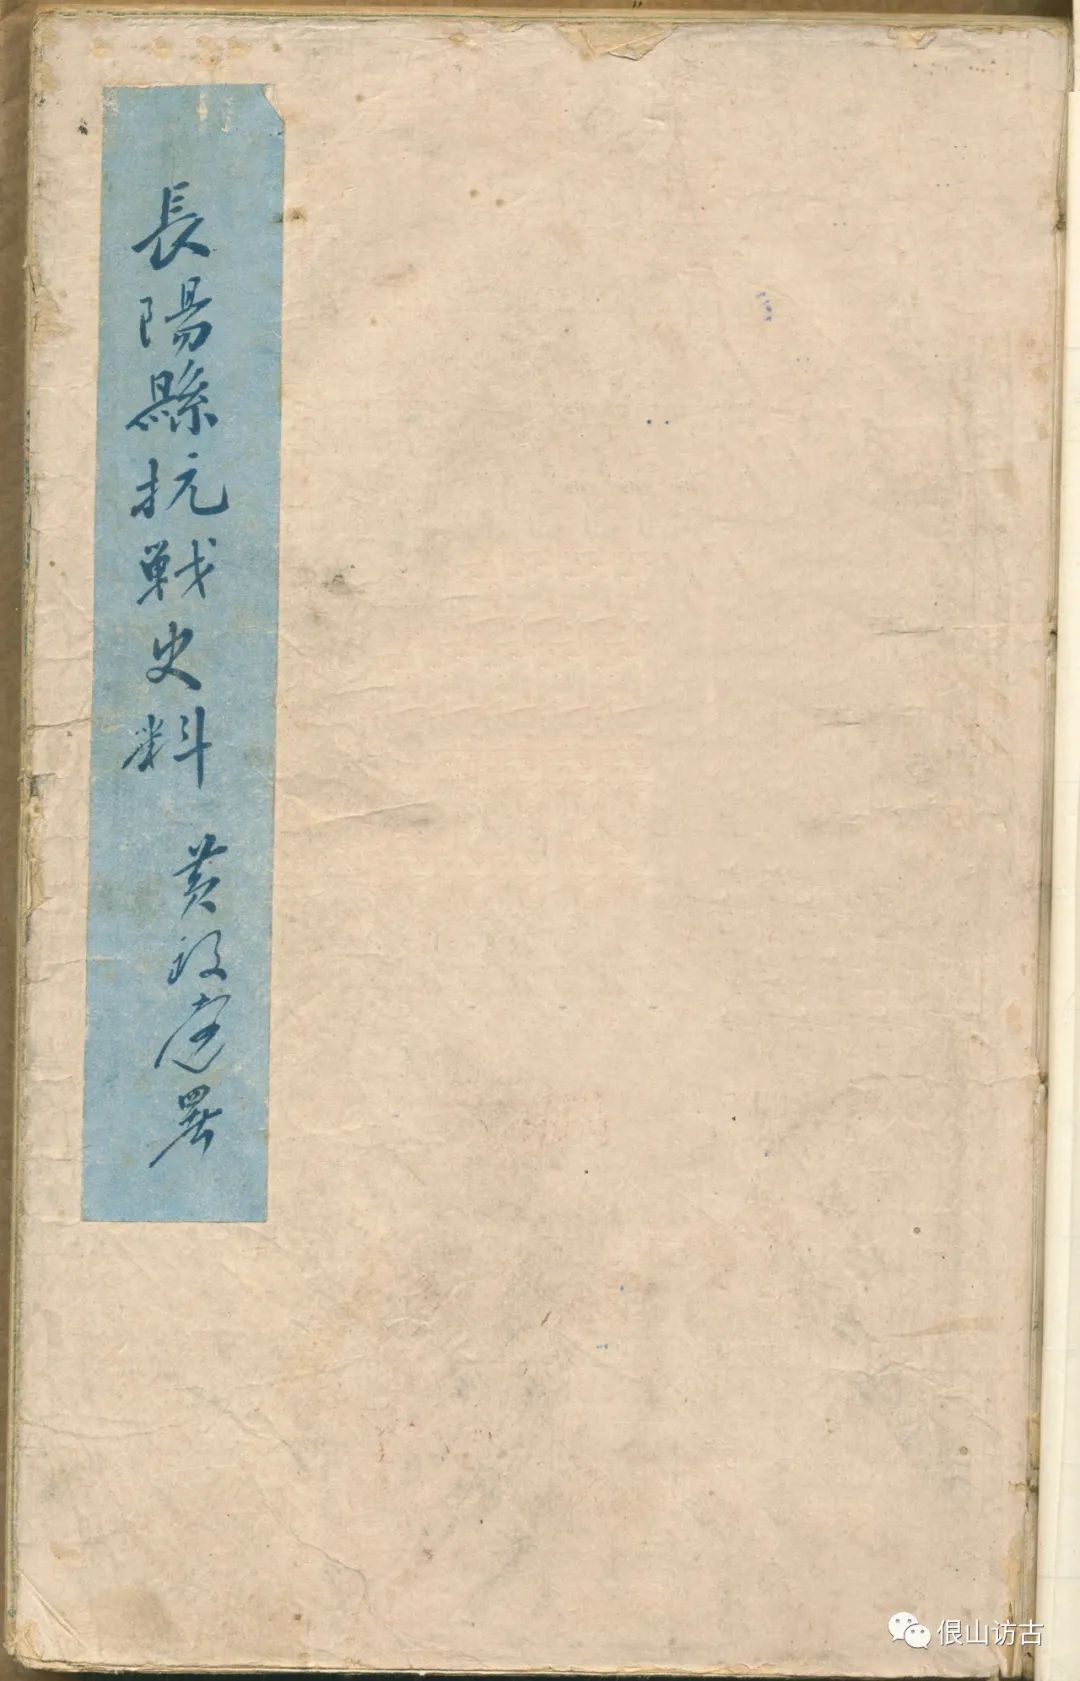 長陽縣抗戰史料
黄政庭署
佷山访古